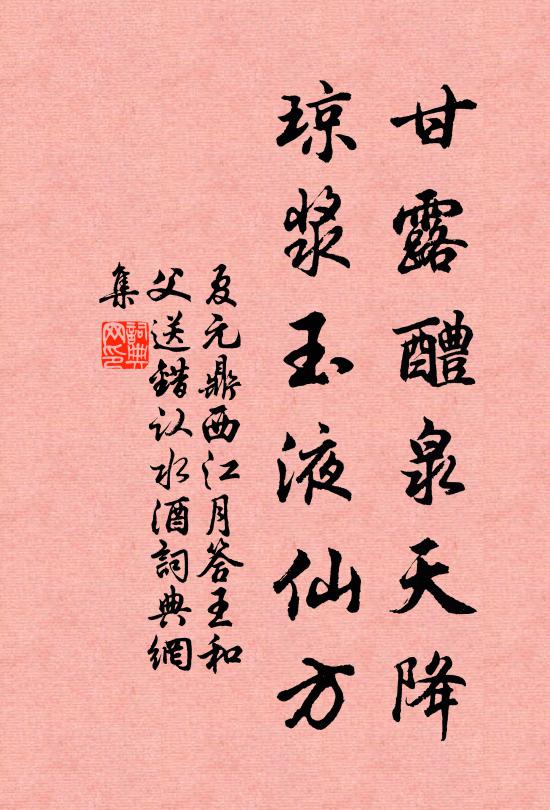 甘露醴泉天降
琼浆玉液仙方
夏元鼎西江月答王和
父送錯认水酒詞典網
集
詞典
网印